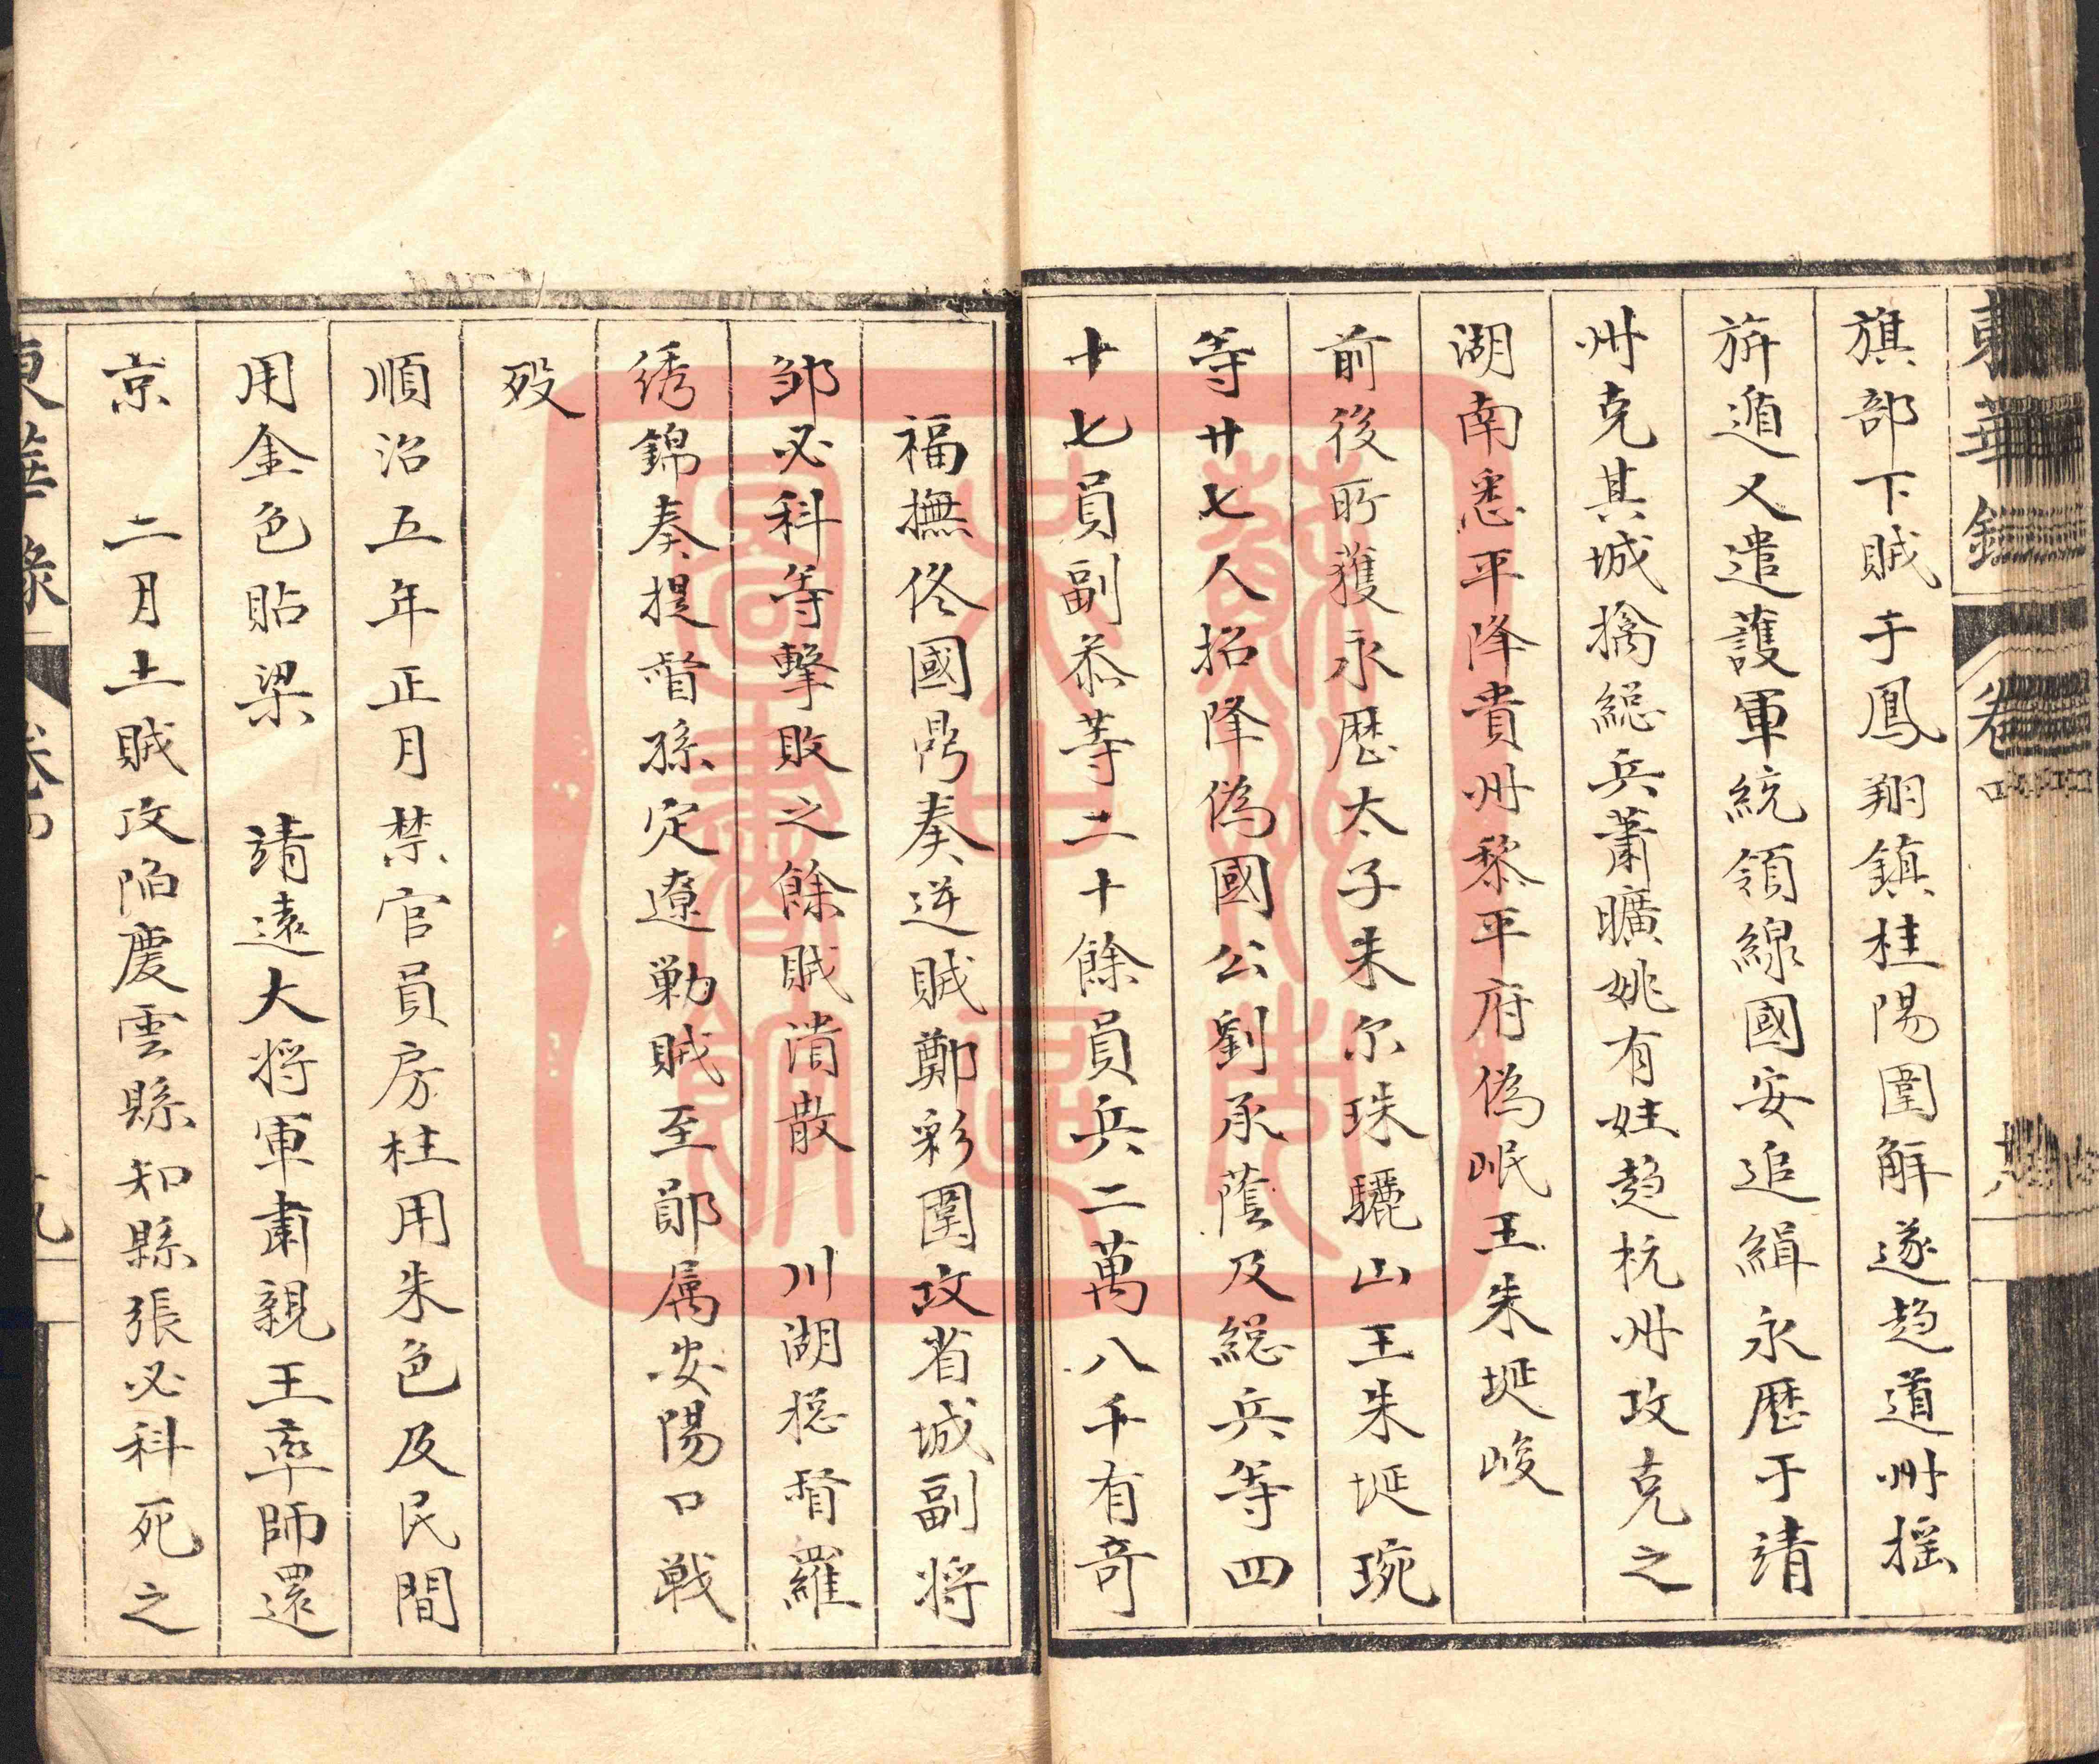 東華錄 卷四
旗部下賊于鳳翔鎮桂陽圍解遂趋道州摇
旂遁又遣護軍統領線國安追緝永歷于靖
州克其城擒総兵蕭曠姚有姓趋杭州攻克之
湖南悉平降貴州黎平府偽岷王朱埏峻
前後所獲永歷太子朱尔珠驪山王朱埏琬
等廿七人招降偽國公劉承蔭及総兵等四
十七員副叅等二十餘員兵二萬八千有奇
福撫佟國鼎奏逆賊鄭彩圍攻省城副将
邹必科等擊敗之餘賊潰散 川湖総督羅
綉錦奏提督孫定遼勦賊至鄖属安陽口戦
殁
順治五年正月禁官員房柱用朱色及民間
用金色貼梁 靖遠大将軍肅親王率師還
京 二月土賊攻陷慶雲縣知縣張必科死之
東華錄 卷四 九
蘇州市人民區圖書館